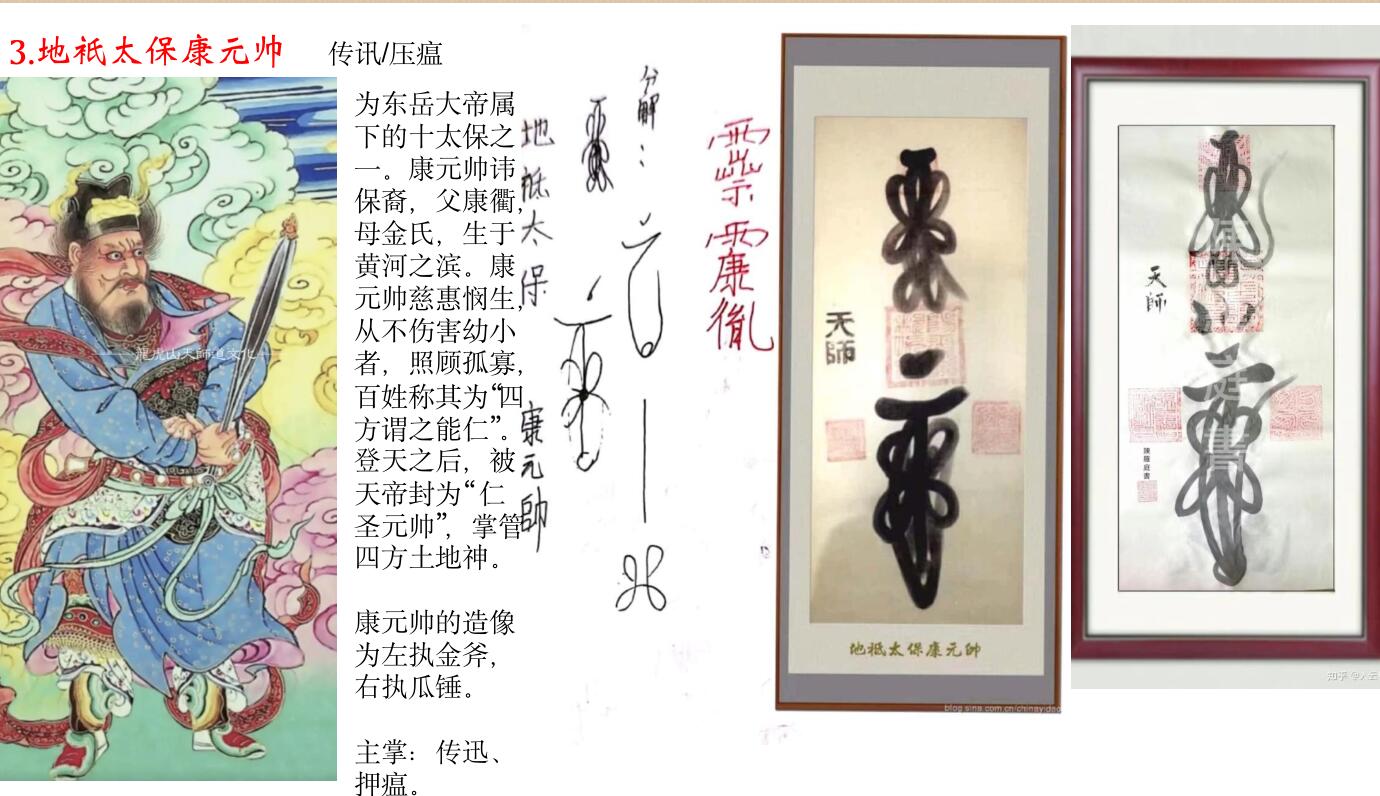 3.地祇太保康元帅
传讯/压瘟
为东岳大帝属
下的十太保之
一。康元帅讳
保裔，父康衢，
母金氏，生于
黄河之滨。康
元帅慈惠悯生，
从不伤害幼小
者，照顾孤寡，
百姓称其为“四
方谓之能仁”。
登天之后，被
天帝封为“仁
圣元帅”，掌管
四方土地神。
康元帅的造像
为左执金斧，
右执瓜锤。
主掌：传迅、
押瘟。
龍虎山天師道文化
地祇太保
康元帥
分解：
天師
地祇太保康元帥
blog.sina.com.cn/chinayidao
天師
陳羅庭書
知乎